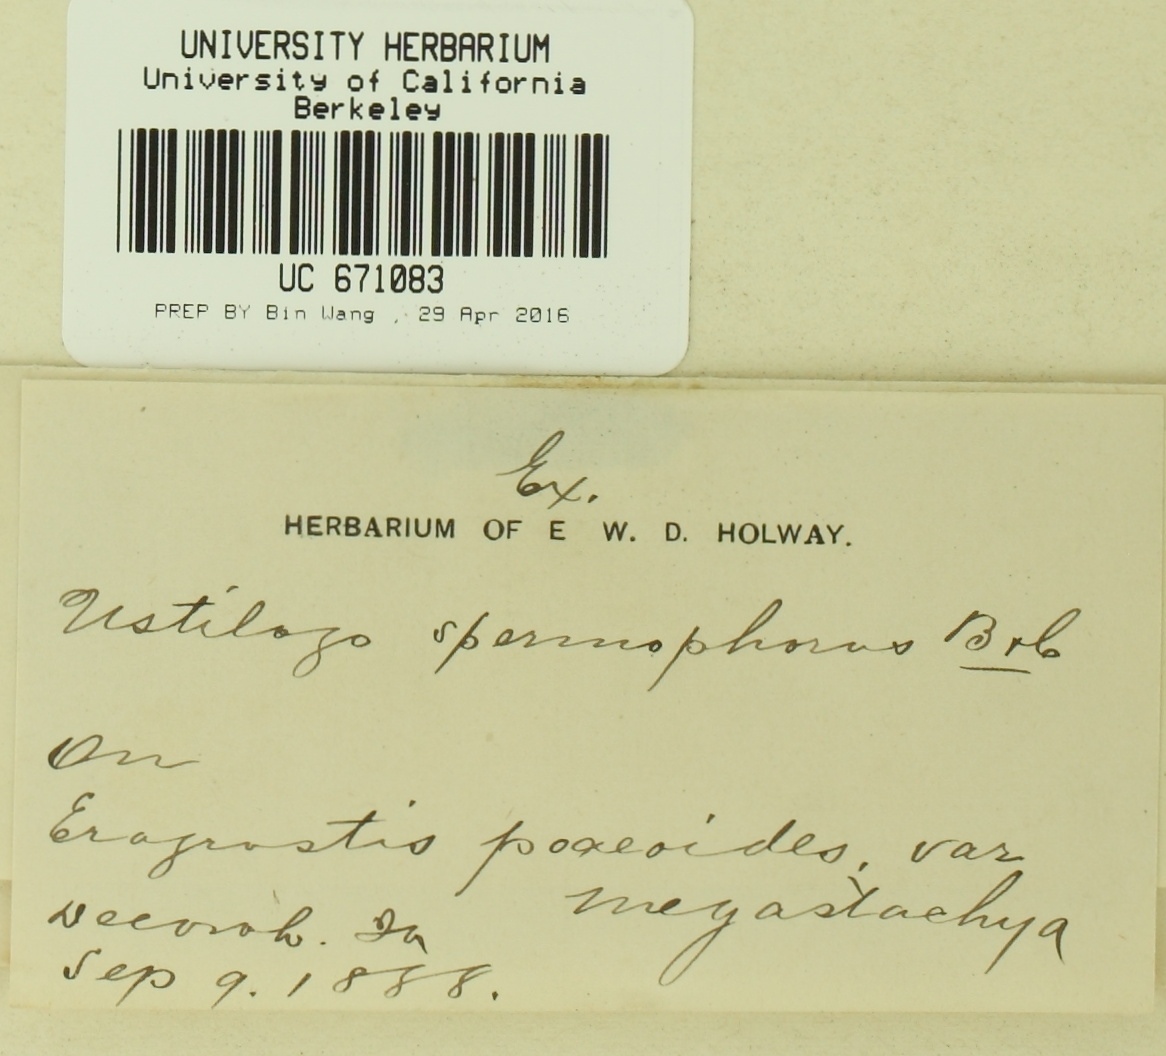 UNIVERSITY HERBARIUM
University of California
Berkeley
UC 671083
PREP BY Bin Wang , 29 Apr 2016
Ex.
HERBARIUM OF E W. D. HOLWAY.
Ustilago spermophorus B+C
On
Eragrostis poaeoides, var
megastachya
Decorah. Ia
Sep 9. 1888.